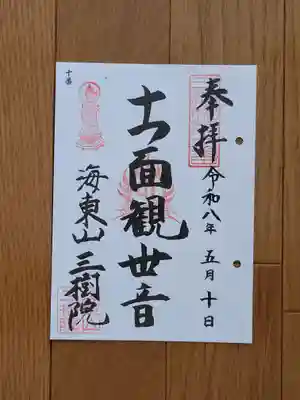 奉拝
令和八年 五月十日
十一面観世音
海東山 三樹院